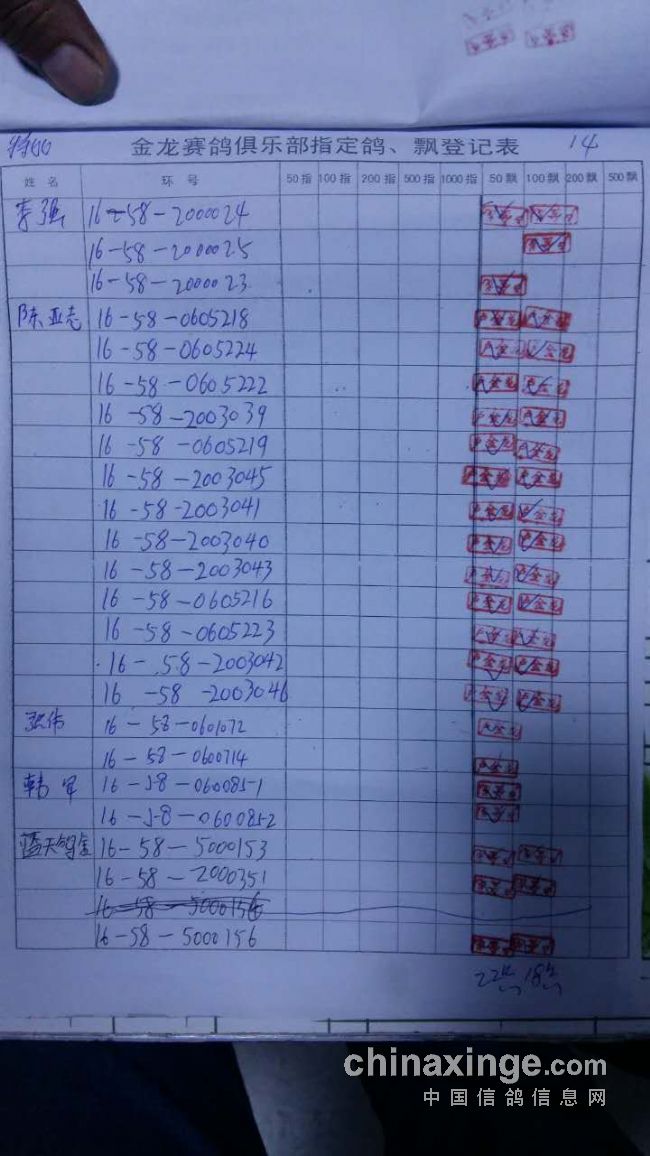 金龙赛鸽俱乐部指定鸽、飘登记表 14
姓名 环号 50指 100指 200指 500指 1000指 50飘 100飘 200飘 500飘
李强 16-58-2000024
16-58-2000025
16-58-2000023
陈亚志 16-58-0605218
16-58-0605224
16-58-0605222
16-58-2003039
16-58-0605219
16-58-2003045
16-58-2003041
16-58-2003040
16-58-2003043
16-58-0605216
16-58-0605223
16-58-2003042
16-58-2003046
张伟 16-58-0601072
16-58-0600714
韩军 16-58-0600851
16-58-0600852
蓝天鸽舍 16-58-5000153
16-58-2000351
16-58-5000156
16-58-5000156
22 18
chinaxinge.com
中国信鸽信息网